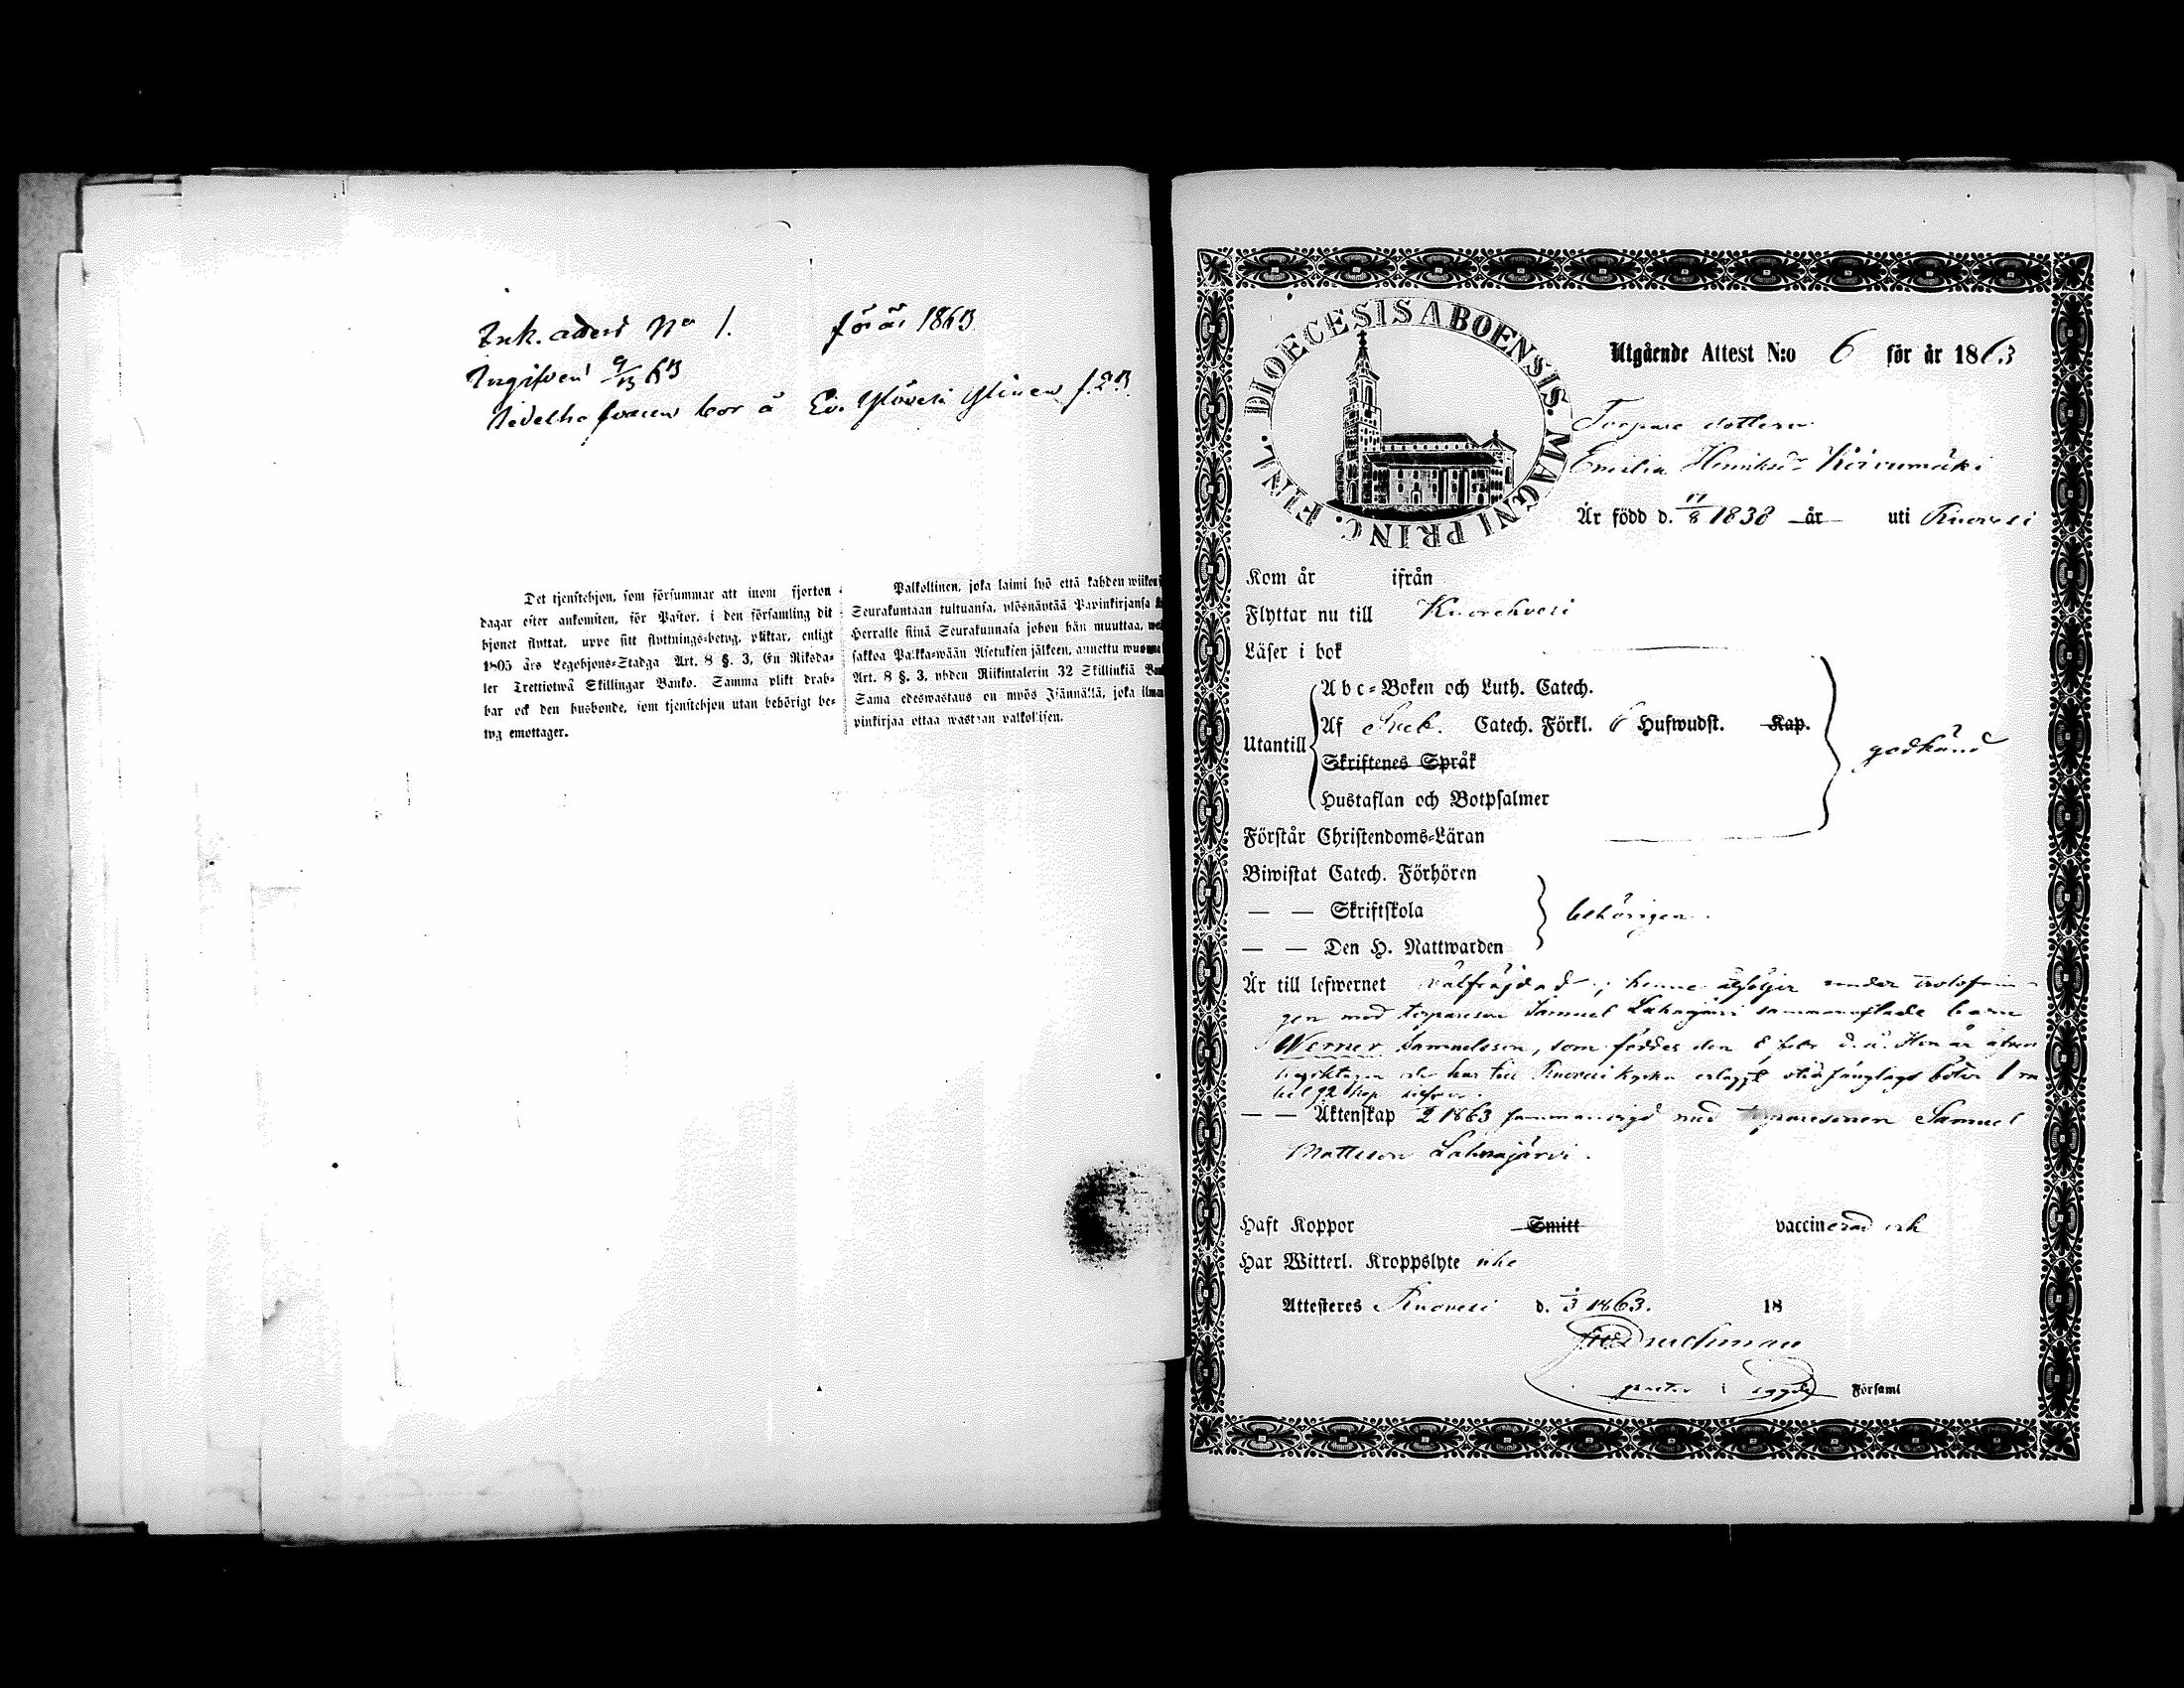 Ink. attest No 1. för år 1863
Ingifven 9/3 63
Det tjenstehjon, som försummar att inom fjorton
dagar efter ankomsten, för Pastor, i den församling dit
hjonet flyttat, uppe sitt flyttnings-betyg, pliktar, enligt
1805 års Legohjons-Stadga Art. 8 §. 3, En Riksda-
ler Trettiotwå Skillingar Banko. Samma plikt drab-
bar ock den husbonde, som tjenstehjon utan behörigt be-
tyg emottager.
Palkollinen, joka laimi lyö että kahden wiikon
Seurakuntaan tultuansa, ylösnäyttää Papinkirjansa
Herralle siinä Seurakunnasa johon hän muuttaa,
sakkoa Palkka-wään Asetuksen jälkeen, annettu wuonna
Art. 8 §. 3, yhden Riikintalerin 32 Skillinkiä
Sama edeswastaus on myös Isännällä, joka ilman
pinkirjaa ottaa wastaan palkollisen.
DIOECESIS ABOENSIS. MAGNI PRINC. FINL.
Utgående Attest N:o 6 för år 1863
Torpare dottern
Emilia Henriksdr Koivumäki
Är född d. 11/8 1838 år uti Ruovesi
Kom år ifrån
Flyttar nu till Kuorehvesi
Läser i bok
Abc-Boken och Luth. Catech.
Utantill Af Sveb. Catech. Förkl. 6 Hufwudst. Kap. godkänd
Skriftenes Språk
Hustaflan och Botpsalmer
Förstår Christendoms-Läran
Biwistat Catech. Förhören
— — Skriftskola behörigen.
— — Den H. Nattwarden
Är till lefwernet välfräjdad; henne åtföljer under trolofnin-
gen med torparesonen Samuel Lahnajärvi sammanaflade barn
Werner Samuelsson, som föddes den 8 febr. d. å. Hon är äfven
och har till Ruovesi kyrka erlagt böter 1
— — Äktenskap 1863 sammanvigd med torparesonen Samuel
Mattsson Lahnajärvi.
Haft Koppor Smitt vaccinerad och
Har Witterl. Kroppslyte icke
Attesteres Ruovesi d. 1/3 1863. 18
i Församl